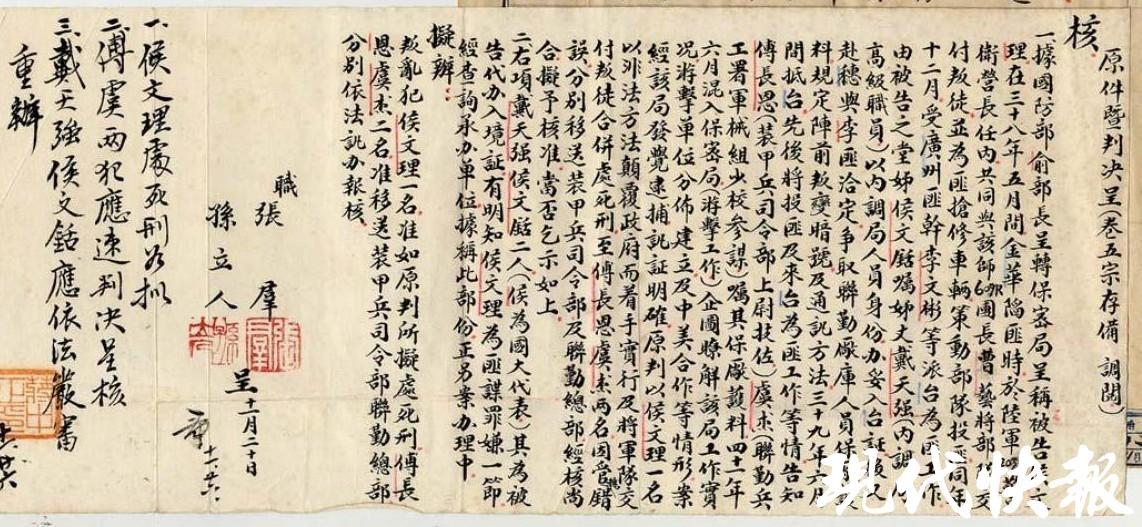 核
原件暨判決呈(卷五宗存備 調閱)
一據國防部俞部長呈轉保密局呈稱被告侯文
理在三十八年五月間金華陷匪時於陸軍
衛營長任內共同與該師 團長曹藝將部隊交
付叛徒並為匪搶修車輛策動部隊投匪同年
十二月受廣州匪幹李文彬等派台為匪工作
由被告之堂姊侯文䤴囑姊丈戴天强(內調局
高級職員)以內調局人員身份办妥入台証
赴穗與李匪洽定爭取聯勤廠庫人員保
料規定陣前叛變暗號及通訊方法三十九年六月
間抵台先後將投匪及來台為匪工作等情告知
傅長恩(裝甲兵司令部上尉技佐)虞杰(聯勤兵
工署軍械組少校參謀)囑其保廠護料四十一年
六月混入保密局(游擊工作)企圖瞭解該局工作實
况游擊單位分佈建立及中美合作等情形案
經該局發覺逮捕訊証明確原判以侯文理一名
以非法方法顛覆政府而着手實行及將軍隊交
付叛徒合併處死刑至傅長恩虞杰兩名因管轄錯
誤分別移送裝甲兵司令部及聯勤總部經核尚
合擬予核准當否乞示如上
二右項戴天强侯文䤴二人(侯為國大代表)其為被
告代办入境証有明知侯文理為匪諜罪嫌一節
經查詢承办單位據稱此部份正另案办理中
擬辦:
叛亂犯侯文理一名准如原判所擬處死刑傅長
恩虞杰二名准移送裝甲兵司令部聯勤總部
分別依法訊办報核
職
張羣
孫立人
呈 十二月二十日
一、侯文理處死刑可如擬
二、傅虞两犯應速判决呈核
三、戴天强侯文䤴應依法嚴審
重辦
現代快報